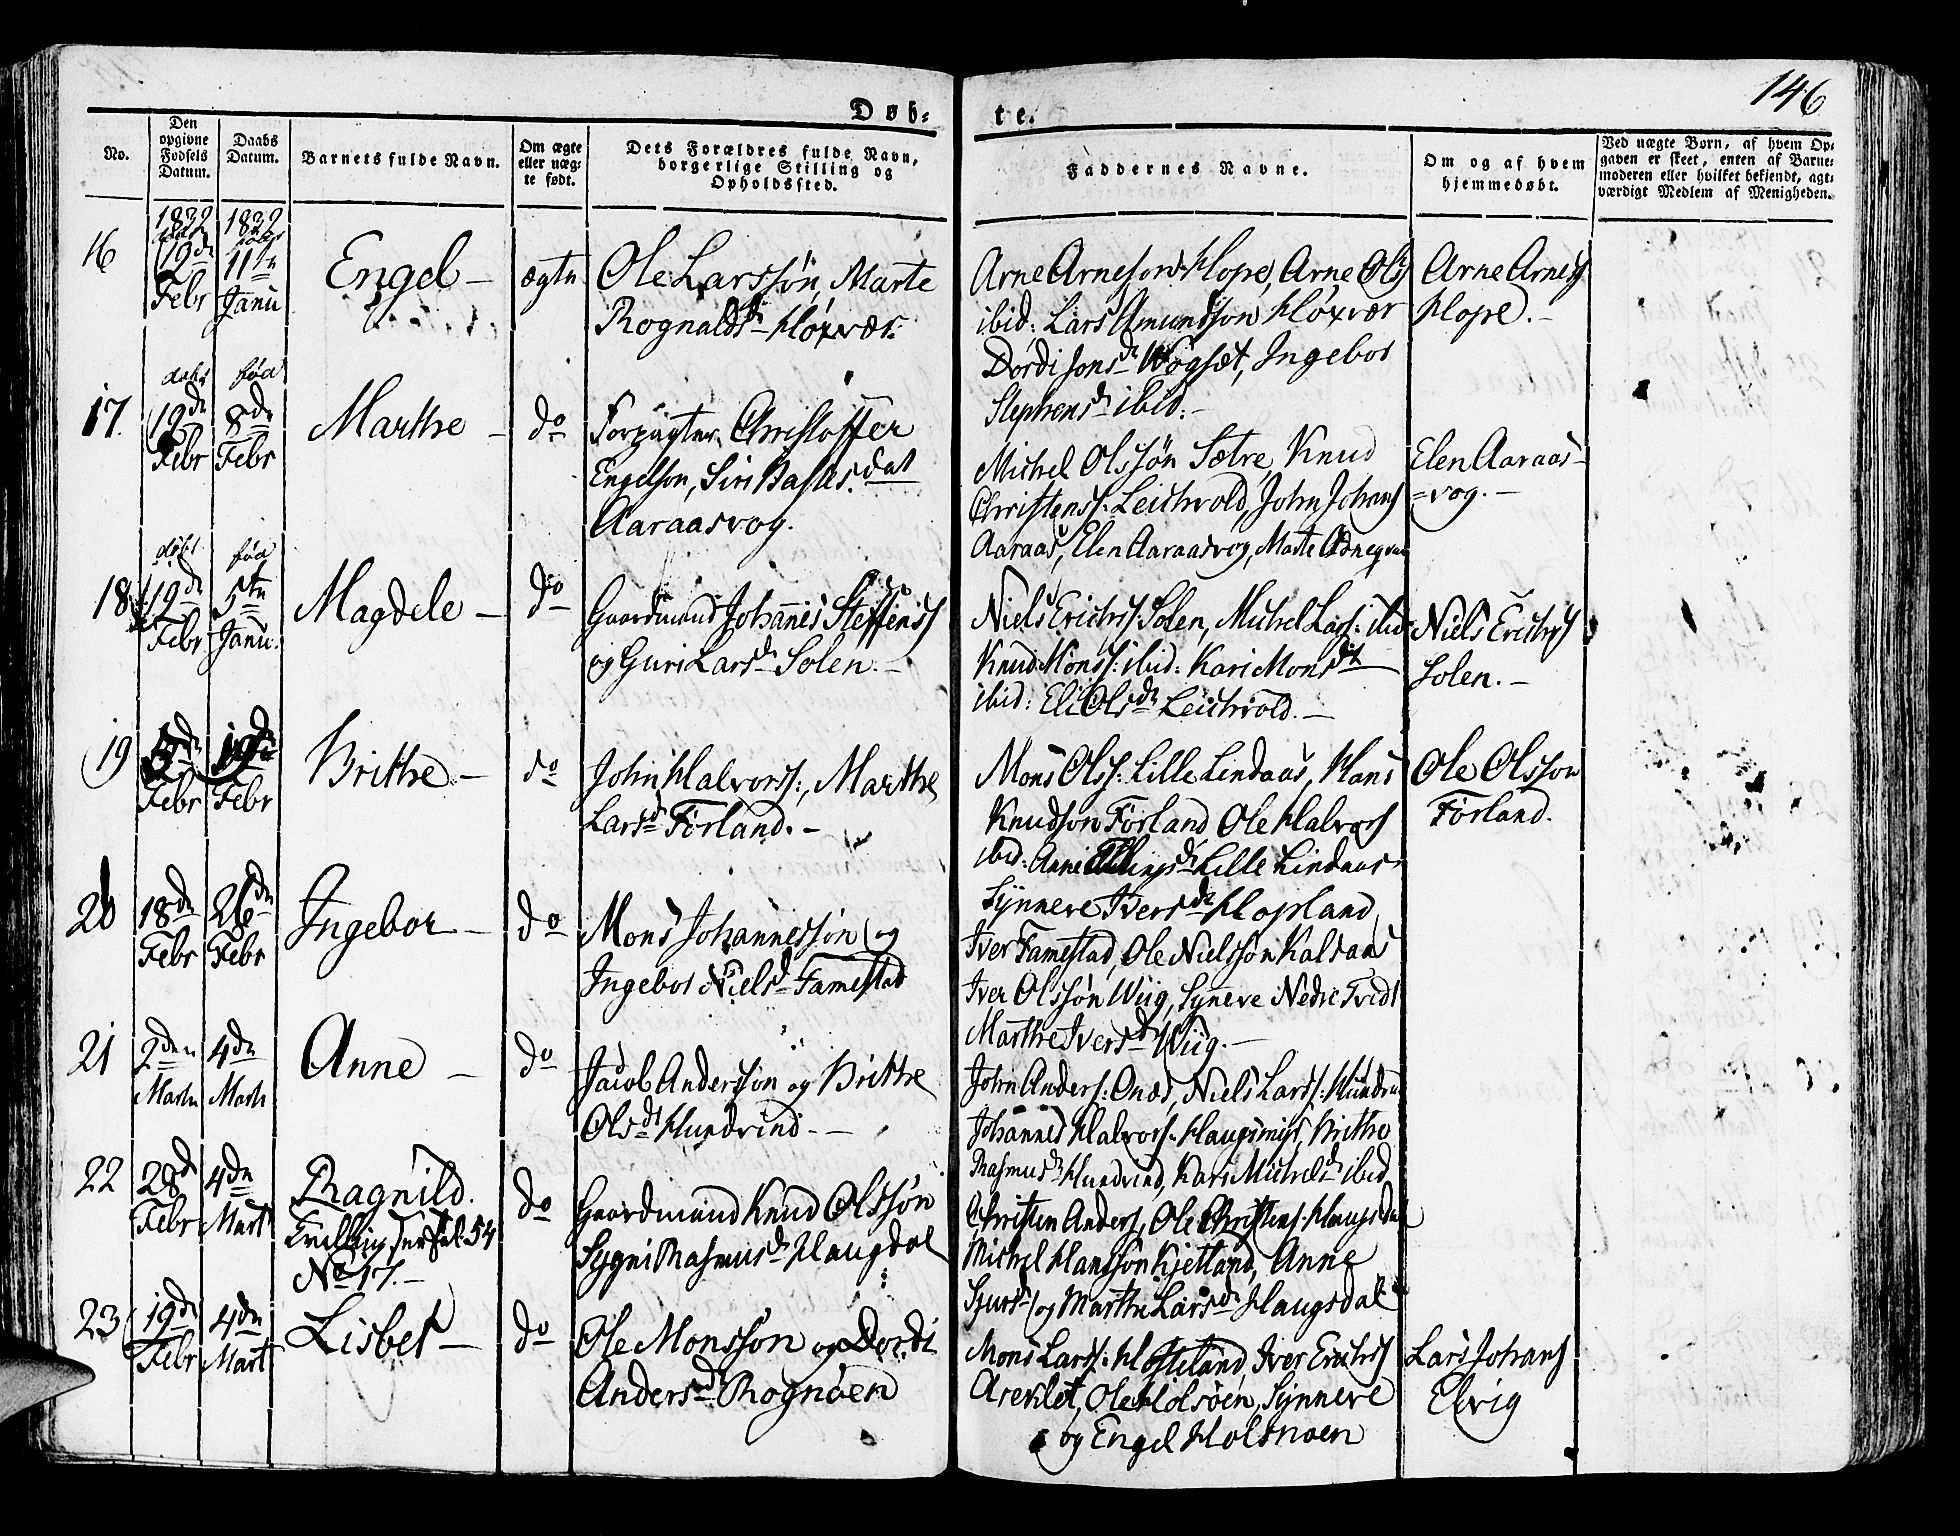 146
Døb-
te.
No.
Den opgivne Fødsels Datum.
Daabs Datum.
Barnets fulde Navn.
Om ægte eller uæg-te født.
Dets Forældres fulde Navn, borgerlige Stilling og Opholdssted.
Faddernes Navne.
Om og af hvem hjemmedøbt.
Ved uægte Børn, af hvem Op-gaven er skeet, enten af Barne-moderen eller hvilket bekjendt, agt-værdigt Medlem af Menigheden.
1832 1832
16
19de Febr
11te Janu
Engel –
ægte
Ole Larssøn, Marte
Rognaldsd
Arne Arneson Hope, Arne Ols
ibid: Lars Amundson
Dordi Jonsd Wogsæt, Ingebor
Stephensd ibid. –
Arne Arnes
Hope. –
døbt fød
17.
19de Febr
8de Febr
Marthe –
do
Forpagter Christoffer
Engelson, Siri dat
Aaraasvog.
Michel Olssøn Sætre, Knud
Christenss: Leichvold, John Johans
Aaraas, Elen Aaraasvog, Marte
Elen Aaraas-
=vog. –
døbt fød
18
19de Febr
5te Janu.
Magdele –
do
Gaardmand Johannes Steffenss
og Guri Larsd Solen. –
Niels Erichss Solen, Michel Lars: ibid
Knud Monss: ibid: Kari Monsdt
ibid: Eli Olsd Leichvold. –
Niels Erichss
Solen. –
19
Febr
19de Febr
Brithe –
do
John Halvorss:, Marthe
Larsd Førland. –
Mons Olss: Lille Lindaas, Hans
Knudson Førland Ole Halvors
ibid: Anne Lille Lindaas
Synneve Iversd Hopland
Ole Olsson
Førland.
20
18de Febr
26de Febr
Ingebor –
do
Mons Johannessøn og
Ingebor Nielsd Famestad
Iver Famestad, Ole Nielssøn Kalsaas
Iver Olssøn Wiig, Synneve Nedre
Marthe Iversd Wiig. –
21
2den Marts
4de Marts
Anne –
do
Jacob Anderssøn og Brithe
Olsdt Hundvind. –
John Anders: Onæs, Niels Larss: Hundvin
Johannes Halvors: Brithe
Rasmusd Hundvind, Kari Michelsd ibid
22
28d Febr
4de Mart
Ragnild.
Tvilling
No 17. –
do
Gaardmand Knud Olssøn
Sygni Rasmusd Haugdal
Christen Anders, Ole Christens: Haugsdal
Michel Hanssøn Kjetland, Anne
Sjursd og Marthe Larsd Haugsdal
23
19de Febr
4de Mart
Lisbet –
do
Ole Monssøn og Dordi
Andersd Rognøen
Mons Larss: Iver Erichss
Areklet, Ole Holsøen, Synneve
og Engel Holsnøen
Lars Johans
Elvig